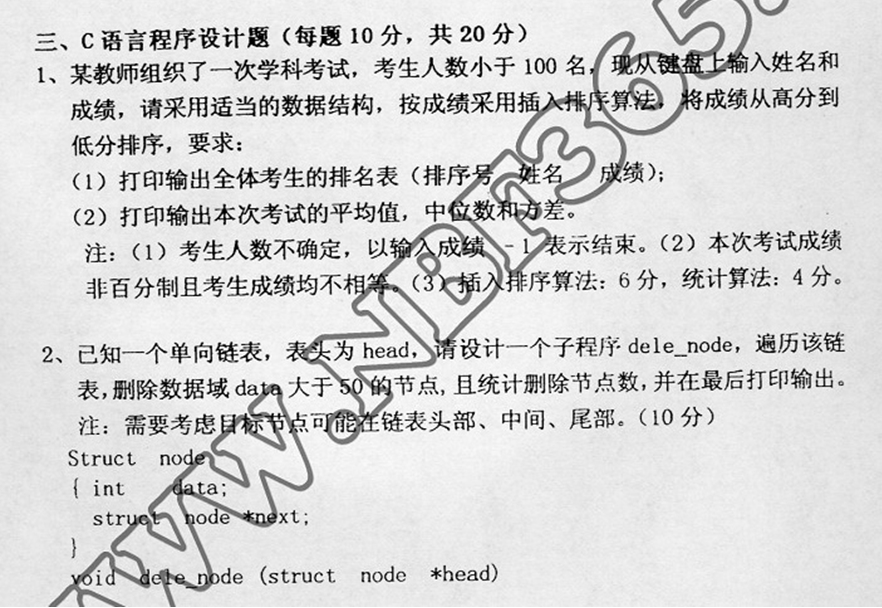 三、C 语言程序设计题（每题 10 分，共 20 分）
1、某教师组织了一次学科考试，考生人数小于 100 名，现从键盘上输入姓名和
成绩，请采用适当的数据结构，按成绩采用插入排序算法，将成绩从高分到
低分排序，要求：
（1）打印输出全体考生的排名表（排序号 姓名 成绩）；
（2）打印输出本次考试的平均值，中位数和方差。
注：（1）考生人数不确定，以输入成绩 -1 表示结束。（2）本次考试成绩
非百分制且考生成绩均不相等。（3）插入排序算法：6 分，统计算法：4 分。
2、已知一个单向链表，表头为 head，请设计一个子程序 dele_node，遍历该链
表，删除数据域 data 大于 50 的节点，且统计删除节点数，并在最后打印输出。
注：需要考虑目标节点可能在链表头部、中间、尾部。（10 分）
Struct node
{ int data;
struct node *next;
}
void dele_node (struct node *head)
WWW.NBF365.